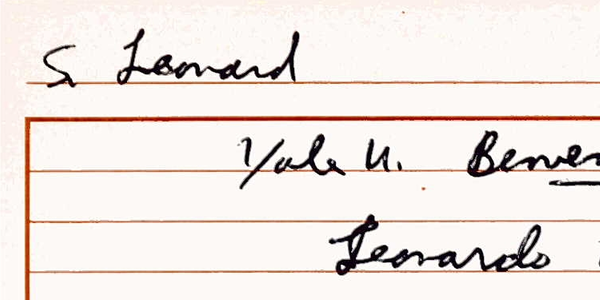 S Leonard
Yale U.
Leonardo